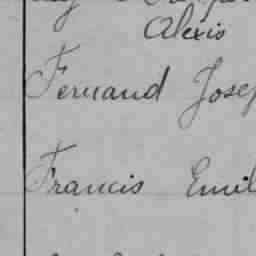 Alexis
Fernand Josep
Francis Emil